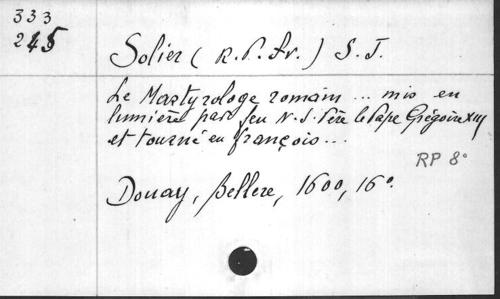 333
245
Solier (R.P. Fr.) S.J.
Le Martyrologe romain ... mis en
lumière par feu N.S. Père le Pape Grégoire XIII
et tourné en françois ...
RP 8°
Douay, Bellere, 1600, 16°.